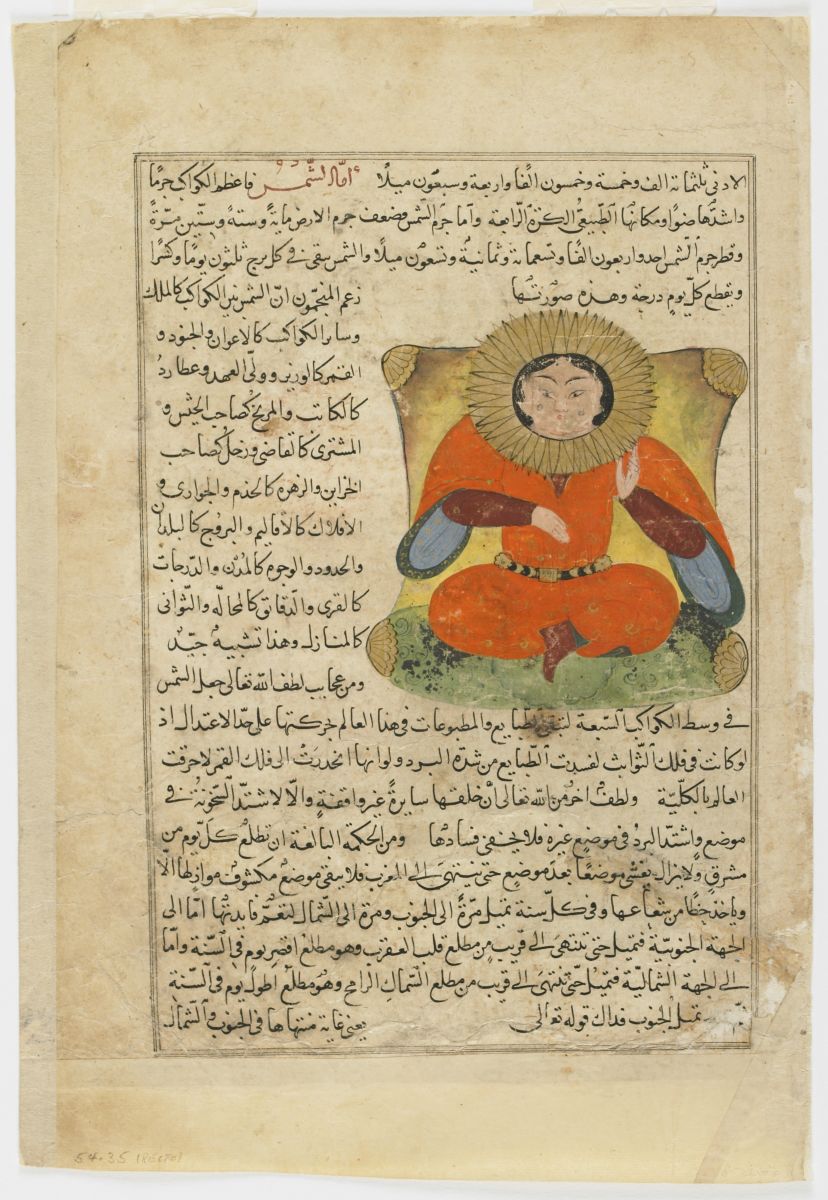 الادنى ثلثمائة الف وخمسة وخمسون الفا واربعة وسبعون ميلا امّا الشّمس فاعظم الكواكب جرمًا
واشدّها ضوًا ومكانها الطّبيعى الكرة الرّابعة واما جرم الشمس ضعف جرم الارض مائة وستة وستّين مرّة
وقطر جرم الشّمس احد واربعون الفًا وتسعمائة وثمانية وتسعون ميلا والشمس تبقى فى كل برج ثلثون يومًا وكسرًا
وتقطع كلّ يوم درجة وهذه صورتها
زعم المنجّمون انّ الشمس بين الكواكب كالملك
وسائر الكواكب كالاعوان والجنود و
القمر كالوزير وولّى العهد وعطارد
كالكاتب والمريخ كصاحب الجيش و
المشترى كالقاضى وزحل كصاحب
الخزاين والزهرة كالخدم والجوارى و
الافلاك كالاقاليم والبروج كالبلدان
والحدود والوجوه كالمدن والدّرجات
كالقرى والدّقايق كالمحالّ والثّوانى
كالمنازل وهذا تشبيه جيّد
ومن عجايب لطف الله تعالى جعل الشمس
فى وسط الكواكب السّبعة لتبقى الطبايع والمطبوعات فى هذا العالم بحركتها على حدّ الاعتدال اذ
لو كانت فى فلك الثّوابت لفسدت الطّبايع من شدّة البرد ولو انها انحدرت الى فلك القمر لاحرقت
العالم بالكلّيّة ولطف اخر من الله تعالى أن خلقها سايرةً غير واقفةٍ والّا لاشتدّ السّخونة فى
موضع واشتدّ البرد فى موضع غيره فلا يخفى فسادها ومن الحكمة البالغة ان تطلع كلّ يوم من
مشرق ولا يزال يغشى موضعًا بعد موضع حتى ينتهى الى المغرب فلا يبقى موضع مكشوف موازٍ لها الّا
وياخذ حظًا من شعاعها وفى كلّ سنة تميل مرّةً الى الجنوب ومرة الى الشّمال لتعمّ فايدتها امّا الى
الجهة الجنوبيّة فتميل حتى تنتهى الى قريب من مطلع قلب العقرب وهو مطلع اقصر يوم فى السّنة وامّا
الى الجهة الشماليّة فتميل حتّى تنتهى الى قريب من مطلع السّماك الرامح وهو مطلع اطول يوم فى السّنة
ثم تميل الجنوب فذاك قوله تعالى يعنى غاية منتهاها فى الجنوب والشمال
54.35 (RECTO)